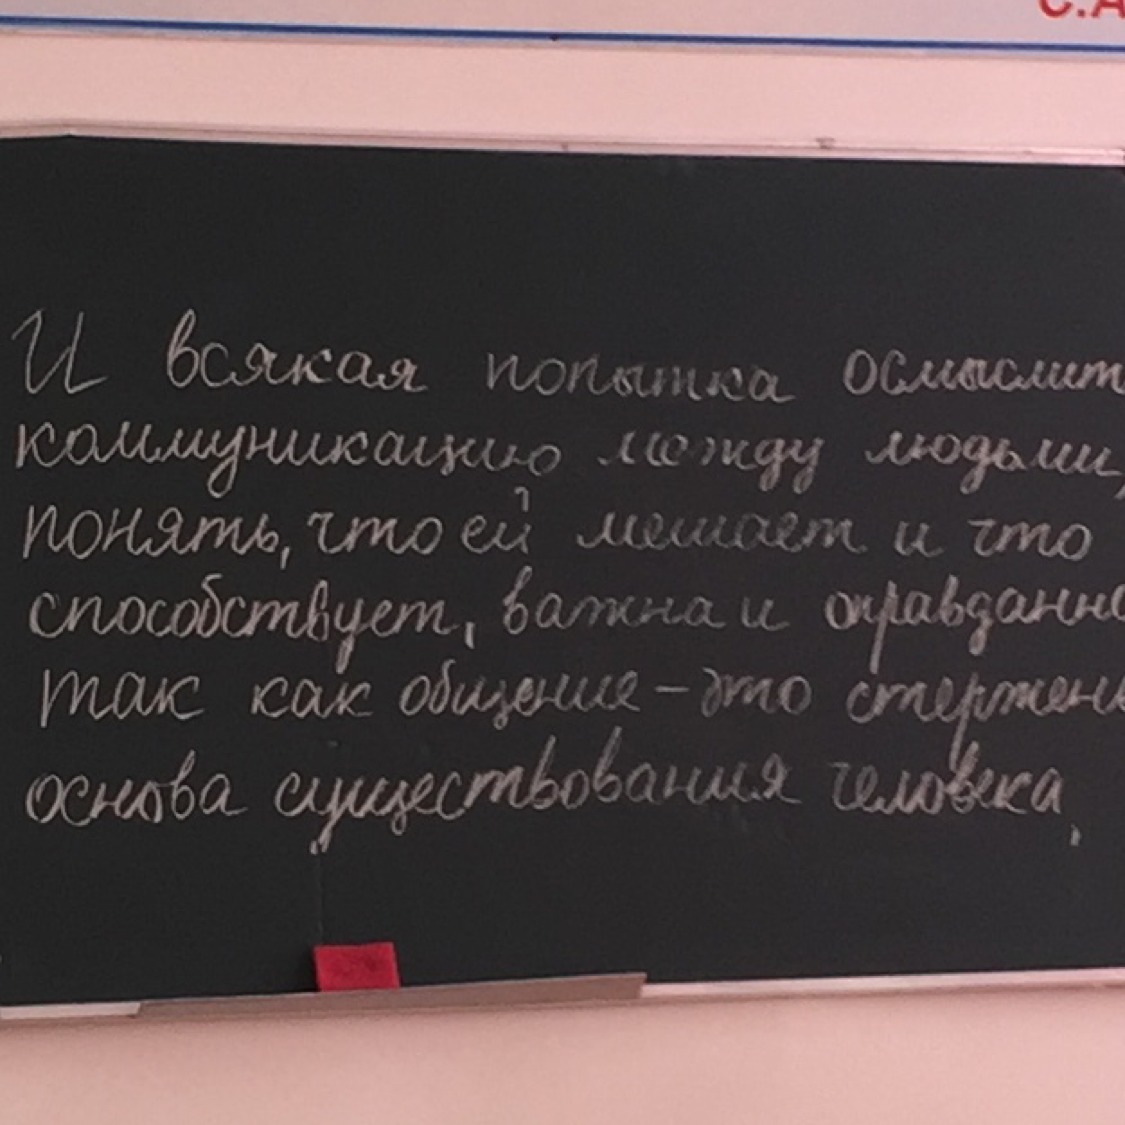 С.А
И всякая попытка осмыслит
коммуникацию между людьми,
понять, что ей мешает и что
способствует, важна и оправданна
так как общение – это стержень
основа существования человека,